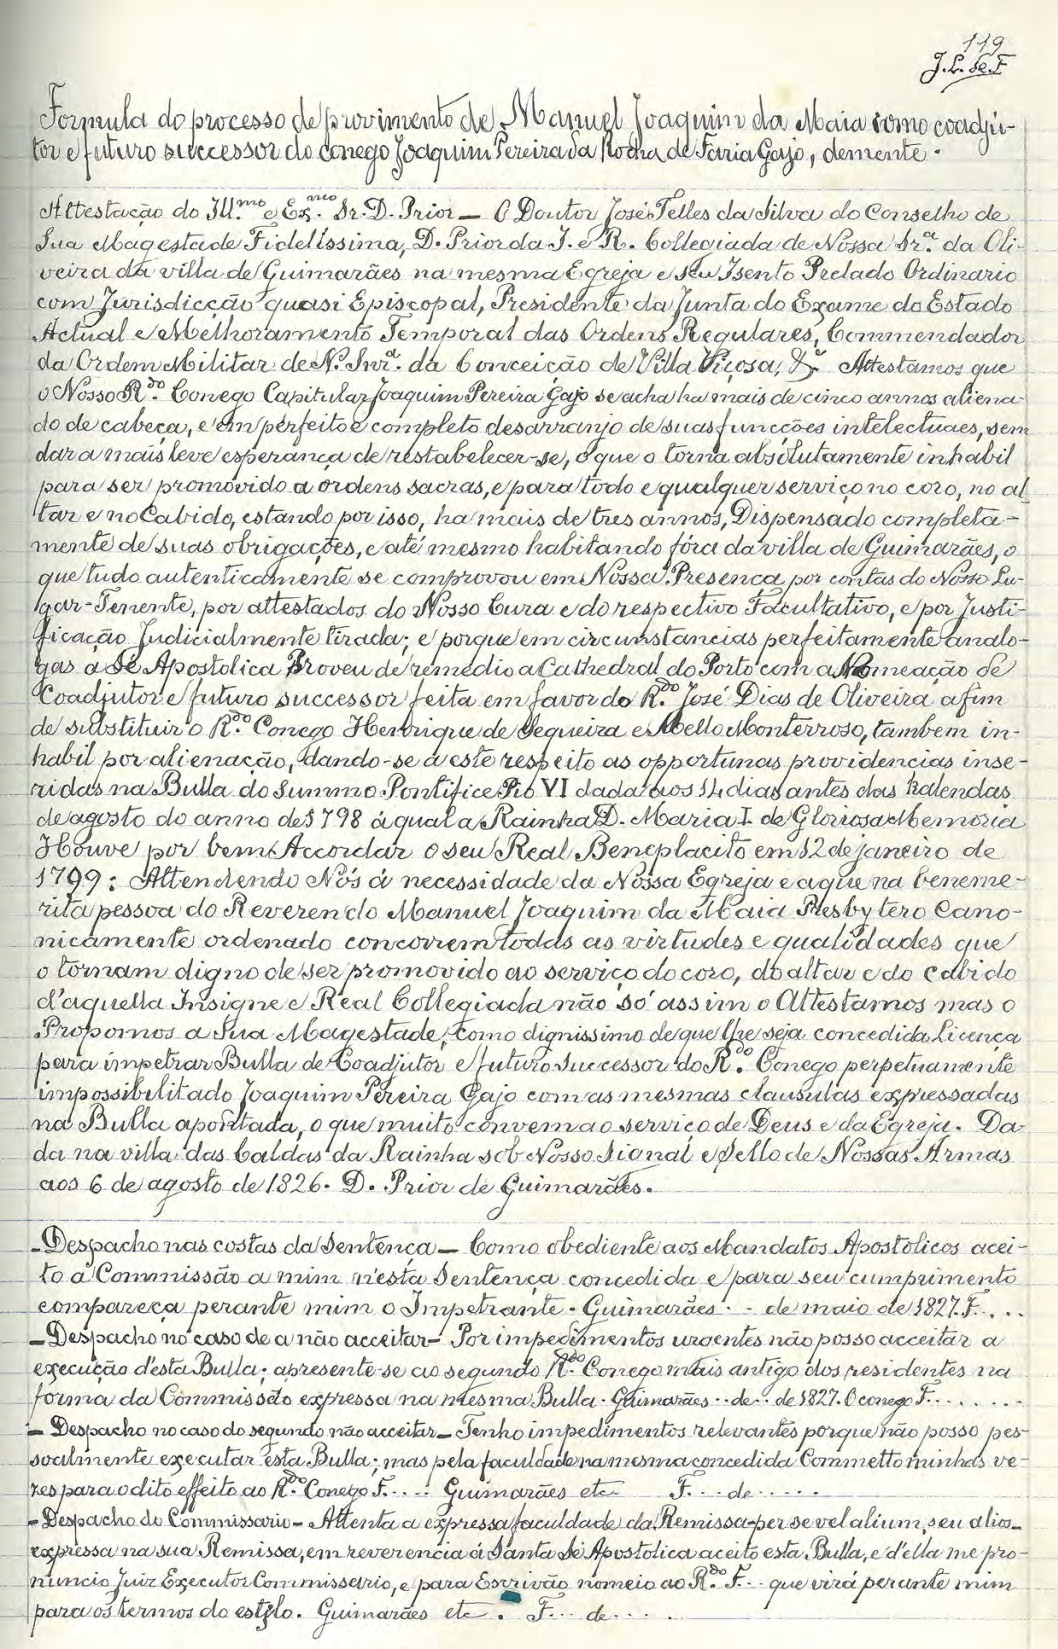 119
J. L. de F
Formula do processo de provimento de Manuel Joaquim da Maia como coadju-
tor e futuro successor do conego Joaquim Pereira da Rocha de Faria Gajo, demente.
Attestação do Ill.mo e Ex.mo Sr. D. Prior — O Doutor José Telles da Silva do Conselho de
Sua Magestade Fidelissima, D. Prior da I. e R. Collegiada de Nossa Sr.a da Oli-
veira da villa de Guimarães na mesma Egreja e seu Isento Prelado Ordinario
com Jurisdicção quasi Episcopal, Presidente da Junta do Exame do Estado
Actual e Melhoramento Temporal das Ordens Regulares, Commendador
da Ordem Militar de N. Snr.a da Conceição de Villa Viçosa, &.a Attestamos que
o Nosso R.do Conego Capitular Joaquim Pereira Gajo se acha ha mais de cinco annos aliena-
do de cabeça, e em perfeito e completo desarranjo de suas funcções intelectuaes, sem
dar a mais leve esperança de restabelecer-se, o que o torna absolutamente inhabil
para ser promovido a ordens sacras, e para todo e qualquer serviço no coro, no al-
tar e no Cabido, estando por isso, ha mais de tres annos, Dispensado completa-
mente de suas obrigações, e até mesmo habitando fóra da villa de Guimarães, o
que tudo autenticamente se comprovou em Nossa Presença por contas do Nosso Lu-
gar-Tenente, por attestados do Nosso Cura e do respectivo Facultativo, e por Justi-
ficação Judicialmente tirada; e porque em circunstancias perfeitamente analo-
gas a Sé Apostolica Proveu de remedio a Cathedral do Porto com a Nomeação de
Coadjutor e futuro successor feita em favor do R.do José Dias de Oliveira a fim
de substituir o R.do Conego Henrique de Sequeira e Mello Monterroso, tambem in-
habil por alienação, dando-se a este respeito as opportunas providencias inse-
ridas na Bulla do Summo Pontifice Pio VI dada aos 14 dias antes das kalendas
de agosto do anno de 1798 á qual a Rainha D. Maria I. de Gloriosa Memoria
Houve por bem Accordar o seu Real Beneplacito em 12 de janeiro de
1799: Attendendo Nós á necessidade da Nossa Egreja e a que na beneme-
rita pessoa do Reverendo Manuel Joaquim da Maia Presbytero Cano-
nicamente ordenado concorrem todas as virtudes e qualidades que
o tornam digno de ser promovido ao serviço do coro, do altar e do cabido
d'aquella Insigne e Real Collegiada não só assim o Attestamos mas o
Propomos a Sua Magestade, como dignissimo de que lhe seja concedida Licença
para impetrar Bulla de Coadjutor e futuro Successor do R.do Conego perpetuamente
impossibilitado Joaquim Pereira Gajo com as mesmas clausulas expressadas
na Bulla apontada, o que muito convem ao serviço de Deus e da Egreja. Da-
da na villa das Caldas da Rainha sob Nosso Signal e Sello de Nossas Armas
aos 6 de agosto de 1826. D. Prior de Guimarães.
- Despacho nas costas da Sentença — Como obediente aos Mandatos Apostolicos acei-
to a Commissão a mim n'esta Sentença concedida e para seu cumprimento
compareça perante mim o Impetrante. Guimarães . - de maio de 1827. F. . . .
- Despacho no caso de a não acceitar - Por impedimentos urgentes não posso acceitar a
execução d'esta Bulla; apresente-se ao segundo R.do Conego mais antigo dos residentes na
forma da Commissão expressa na mesma Bulla. Guimarães .. de .. de 1827. O conego F. . . . . . . .
- Despacho no caso do segundo não acceitar - Tenho impedimentos relevantes porque não posso pes-
soalmente executar esta Bulla; mas pela faculdade na mesma concedida Commetto minhas ve-
zes para o dito effeito ao R.do Conego F. . . . . Guimarães etc F. . . de . . . . .
- Despacho do Commissario - Attenta a expressa faculdade da Remissa - per se vel alium, seu alios -
expressa na sua Remissa, em reverencia á Santa Sé Apostolica aceito esta Bulla, e d'ella me pro-
nuncio Juiz Executor Commissario, e para Escrivão nomeio ao R.do F... que virá perante mim
para os termos do estylo. Guimarães etc. F... de . . . .